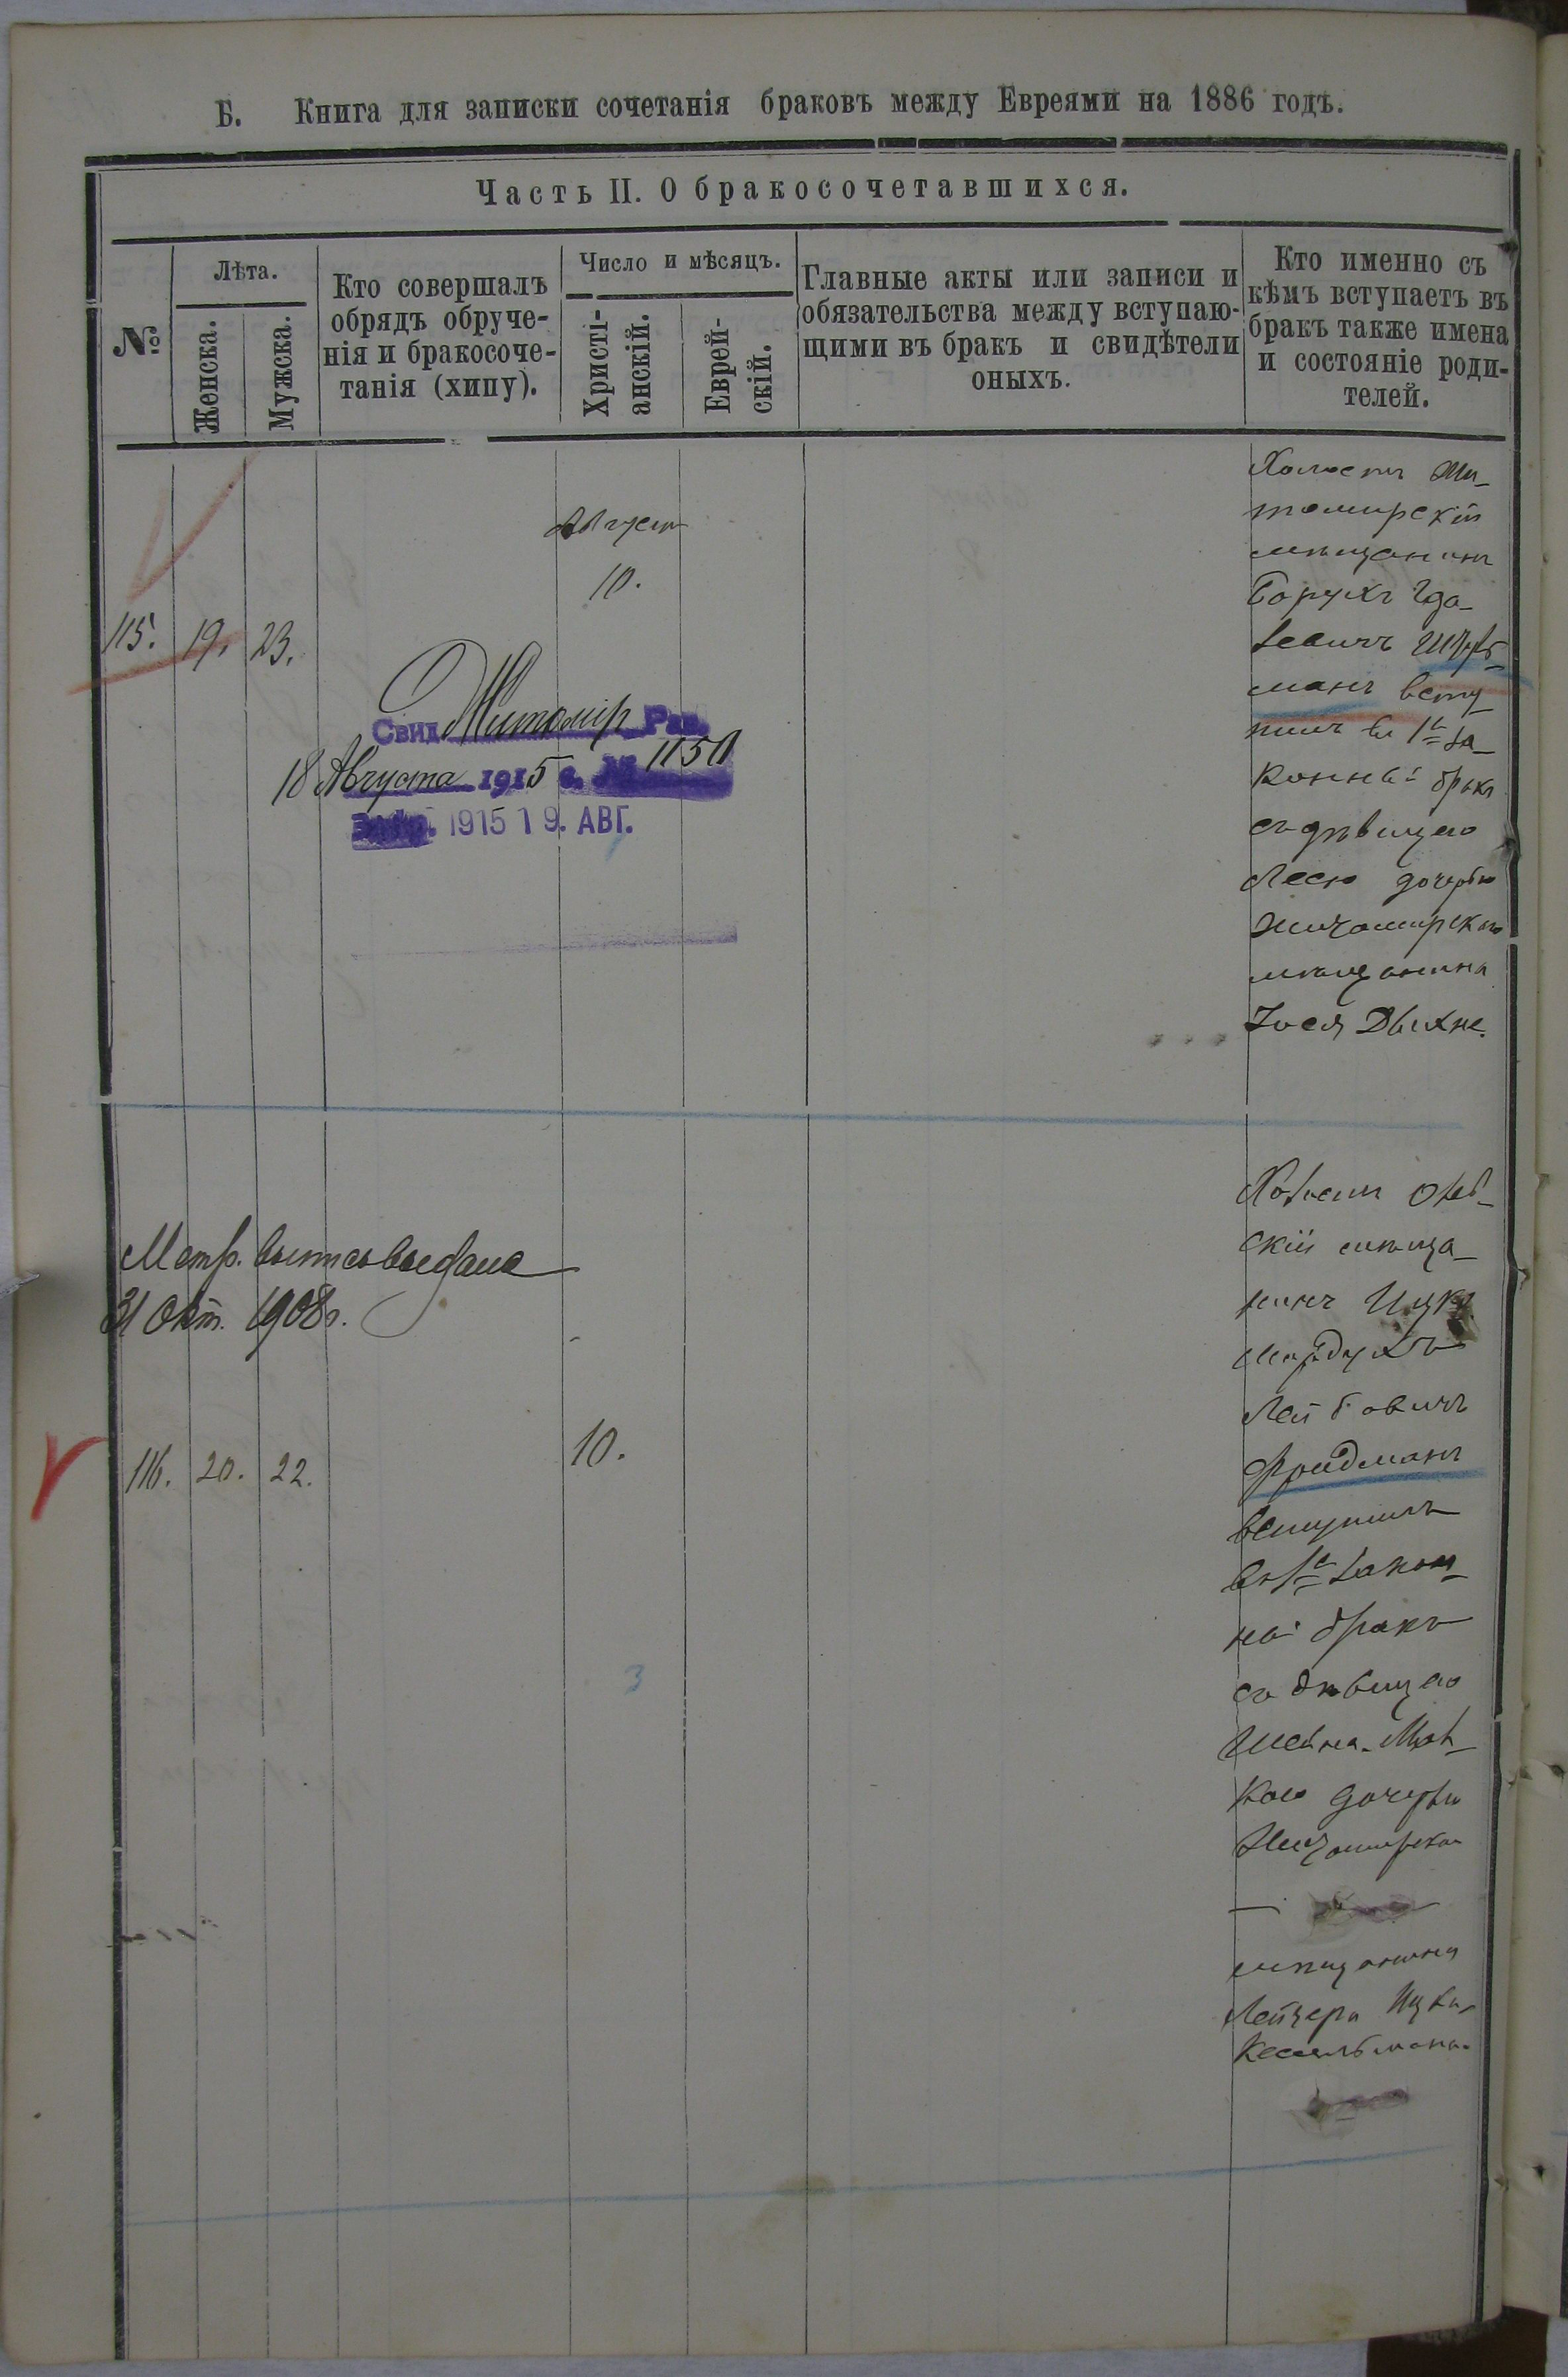 Б. Книга для записки сочетанія браковъ между Евреями на 1886 годъ.
Часть II. О бракосочетавшихся.
№
Лѣта.
Женска.
Мужска.
Кто совершалъ
обрядъ обруче-
нія и бракосоче-
танія (хипу).
Число и мѣсяцъ.
Христі-
анскій.
Еврей-
скій.
Главные акты или записи и
обязательства между вступаю-
щими въ бракъ и свидѣтели
оныхъ.
Кто именно съ
кѣмъ вступаетъ въ
бракъ также имена
и состояніе роди-
телей.
Августъ
10.
115. 19. 23.
Свид. Житомир. Рав.
18 Августа 1915 г. № 1150
1915 19. АВГ.
Холостъ Жи-
томирскій
мѣщанинъ
Борухъ
манъ всту-
пилъ въ 1й за-
конный бракъ
съ дѣвицею
Лесю дочерью
Житомирскаго
мѣщанина
Іося
Метр. выпись выдана
31 Окт. 1908 г.
116. 20. 22.
10.
3
Холостъ
скій мѣща-
нинъ Ицко
Мордухъ
Лейбовичъ
Фридманъ
вступилъ
въ 1й закон-
ный бракъ
съ дѣвицею
Шейна-
кою дочерью
Житомирскаго
мѣщанина
Лейзера
Кесельмана.